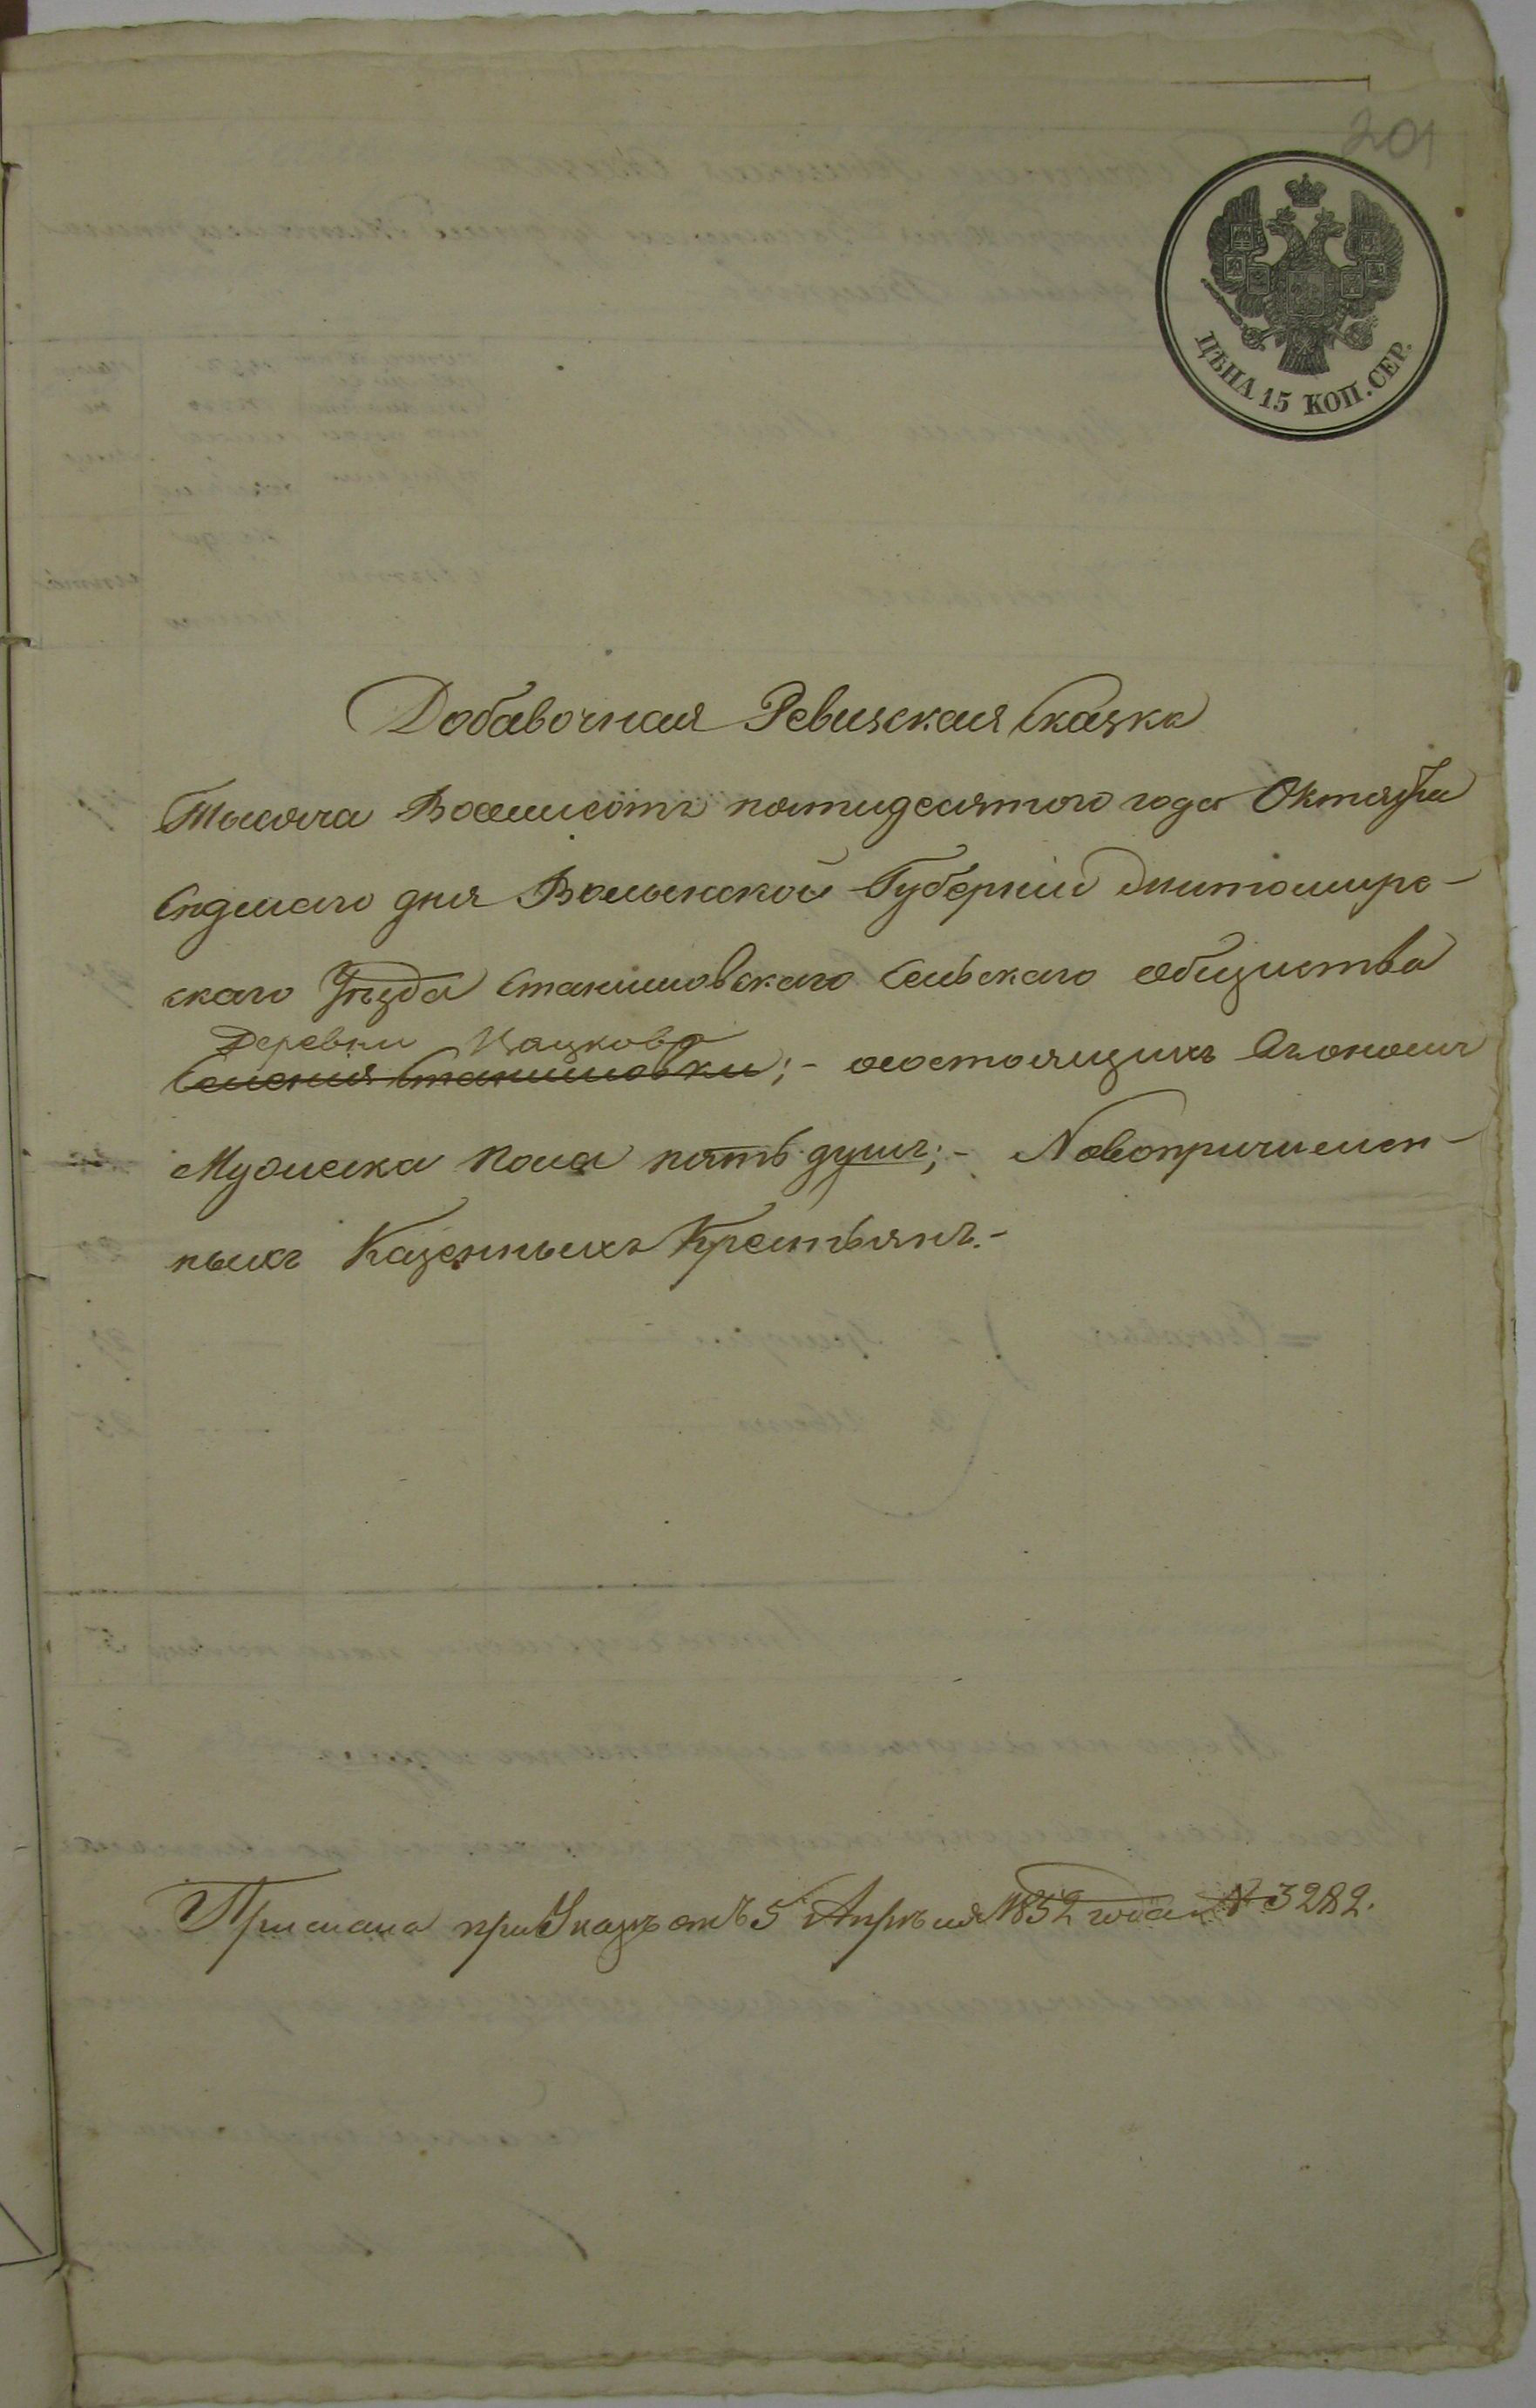 201
ЦѢНА 15 КОП. СЕР.
Добавочная Ревизская сказка
Тысяча Восемисотъ пятидесятого года Октября
Седмаго дня Волынской Губерніи Житомирс-
скаго Уѣзда Станишовскаго Сельскаго общества
Деревни Вацкова
Селенія Станишовки;- о состоящихъ въ ономъ
Мужеска пола пять душъ;- Новопричислен-
ныхъ Казенныхъ Крестьянъ.-
Прислана при Указѣ отъ 5 Апрѣля 1852 года № 3282.